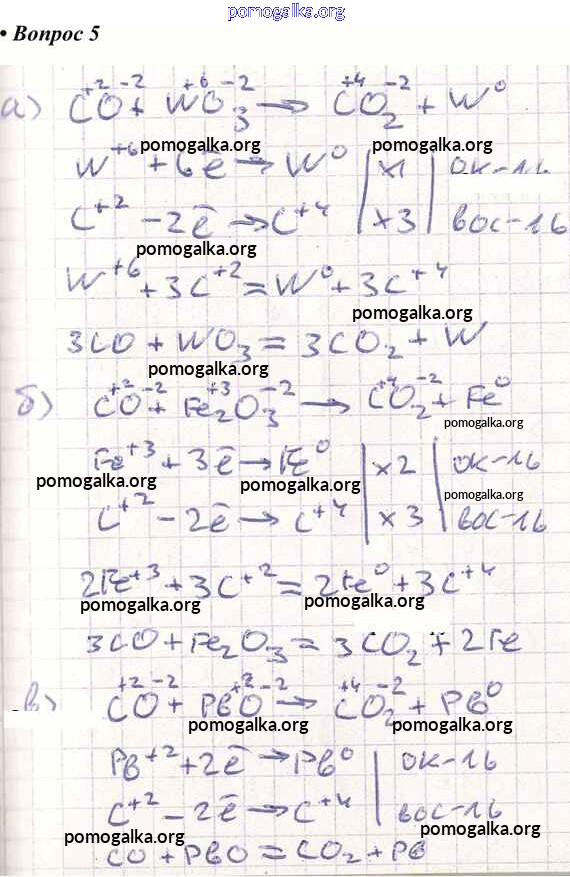 pomogalka.org
• Вопрос 5
а) C⁺²O⁻² + W⁺⁶O₃⁻² → C⁺⁴O₂⁻² + W⁰
pomogalka.org pomogalka.org
W⁺⁶ + 6ē → W⁰ | x1 | ок-ль
C⁺² - 2ē → C⁺⁴ | x3 | вос-ль
pomogalka.org
W⁺⁶ + 3C⁺² = W⁰ + 3C⁺⁴
pomogalka.org
3CO + WO₃ = 3CO₂ + W
pomogalka.org
б) C⁺²O⁻² + Fe₂⁺³O₃⁻² → C⁺⁴O₂⁻² + Fe⁰
pomogalka.org
Fe⁺³ + 3ē → Fe⁰ | x2 | ок-ль
pomogalka.org pomogalka.org pomogalka.org
C⁺² - 2ē → C⁺⁴ | x3 | вос-ль
2Fe⁺³ + 3C⁺² = 2Fe⁰ + 3C⁺⁴
pomogalka.org pomogalka.org
3CO + Fe₂O₃ = 3CO₂ + 2Fe
в) C⁺²O⁻² + Pb⁺²O⁻² → C⁺⁴O₂⁻² + Pb⁰
pomogalka.org pomogalka.org
Pb⁺² + 2ē → Pb⁰ | ок-ль
C⁺² - 2ē → C⁺⁴ | вос-ль
pomogalka.org pomogalka.org
CO + PbO = CO₂ + Pb